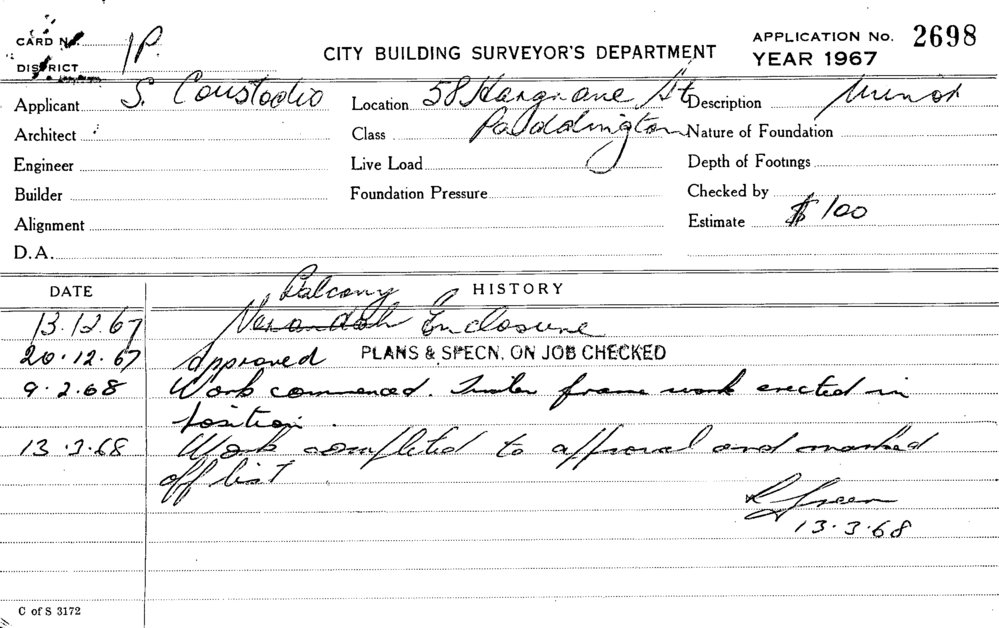 CARD No. 1P.
DISTRICT
CITY BUILDING SURVEYOR'S DEPARTMENT
APPLICATION No. 2698
YEAR 1967
Applicant S. Coustodio Location 58 Hargrave St Description Minor
Architect Class Paddington Nature of Foundation
Engineer Live Load Depth of Footings
Builder Foundation Pressure Checked by
Alignment Estimate $100
D.A.
DATE HISTORY
Balcony
13.12.67 Verandah Enclosure
20.12.67 Approved PLANS & SPECN. ON JOB CHECKED
9.2.68 Work commenced. Timber frame work erected in
position.
13.3.68 Work completed to approval and marked
off list
Green
13.3.68
C of S 3172